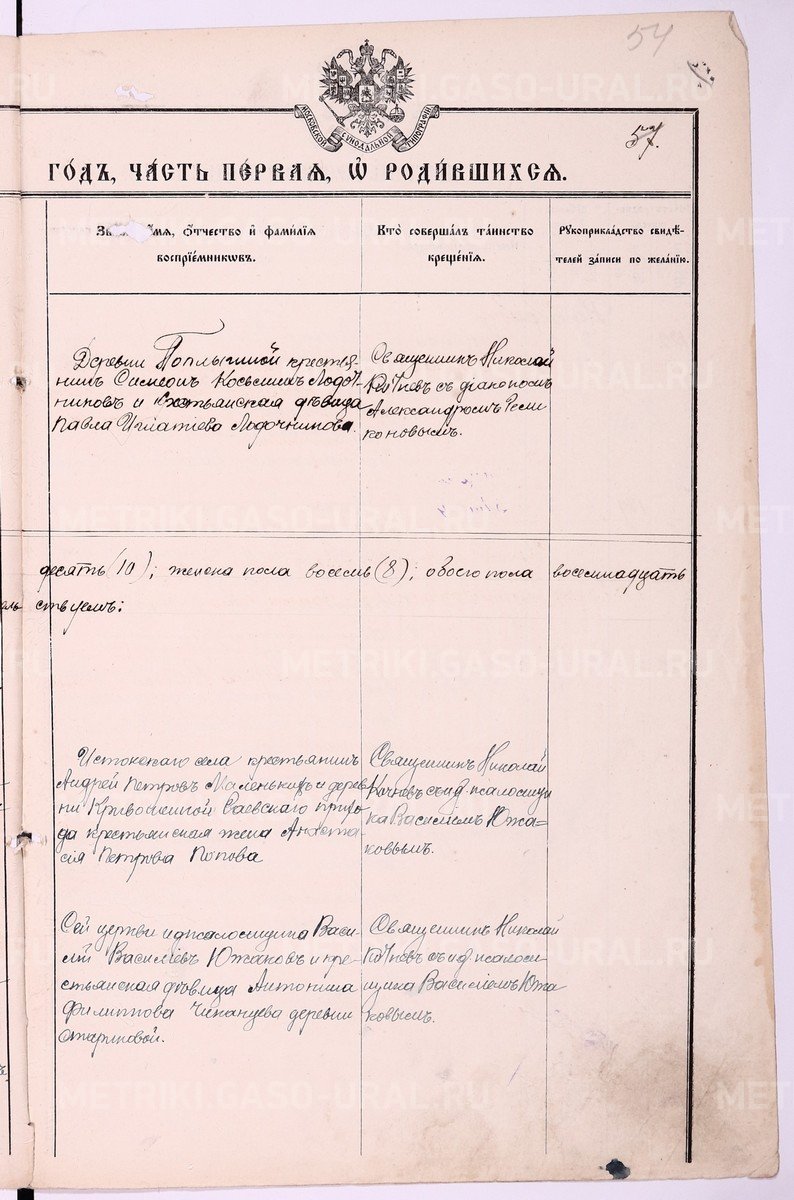 54
57.
МОСКОВСКОЙ СѴНОДАЛЬНОЙ ТИПОГРАФІИ
ГОДЪ, ЧАСТЬ ПЕРВАЯ, Ѡ РОДИВШИХСЯ.
имя, отчество и фамилія воспріемниковъ.
Кто совершалъ таинство крещенія.
Рукоприкладство свидѣтелей записи по желанію.
Деревни крестья-
нинъ Симеонъ Косьминъ Лодоч-
никовъ и крестьянская дѣвица
Павла Игнатіева Лодочникова
Священникъ Николай
съ діакономъ
Александромъ
десять (10); женска пола восемь (8); обоего пола восемнадцать
ствуемъ:
Истокскаго села крестьянинъ
Андрей Петровъ Маленькихъ и дерев
ни Кривошеиной прихо
да крестьянская жена Анаста
сія Петрова Попова
Священникъ Николай
съ и. д. псаломщи
ка Василіемъ Южа=
ковымъ.
Сей церкви и. д. псаломщика Васи-
лій Василіевъ Южаковъ и кре-
стьянская дѣвица Антонина
Филиппова деревни
Священникъ Николай
съ и. д. псалом
щика Василіемъ Южа
ковымъ.
METRIKI.GASO-URAL.RU